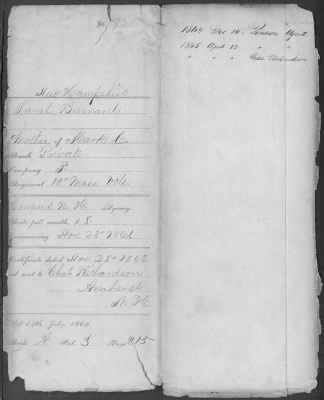 New Hampshire
Sarah Barnard
Mother of Mark C.
Rank Private
Company F.
Regiment 10th Mass Vols.
Concord N. H. Agency
Rate per month $8
Commencing Nov. 23d 1861
Certificate dated Nov. 28th 1863
and sent to Chas Richardson
Amherst
N. H.
Act 14th July, 1862
Book A Vol. 3 Page 215
1864 Dec 14. Pension Agent
1865 April 12 " "
" " " Chas Richardson